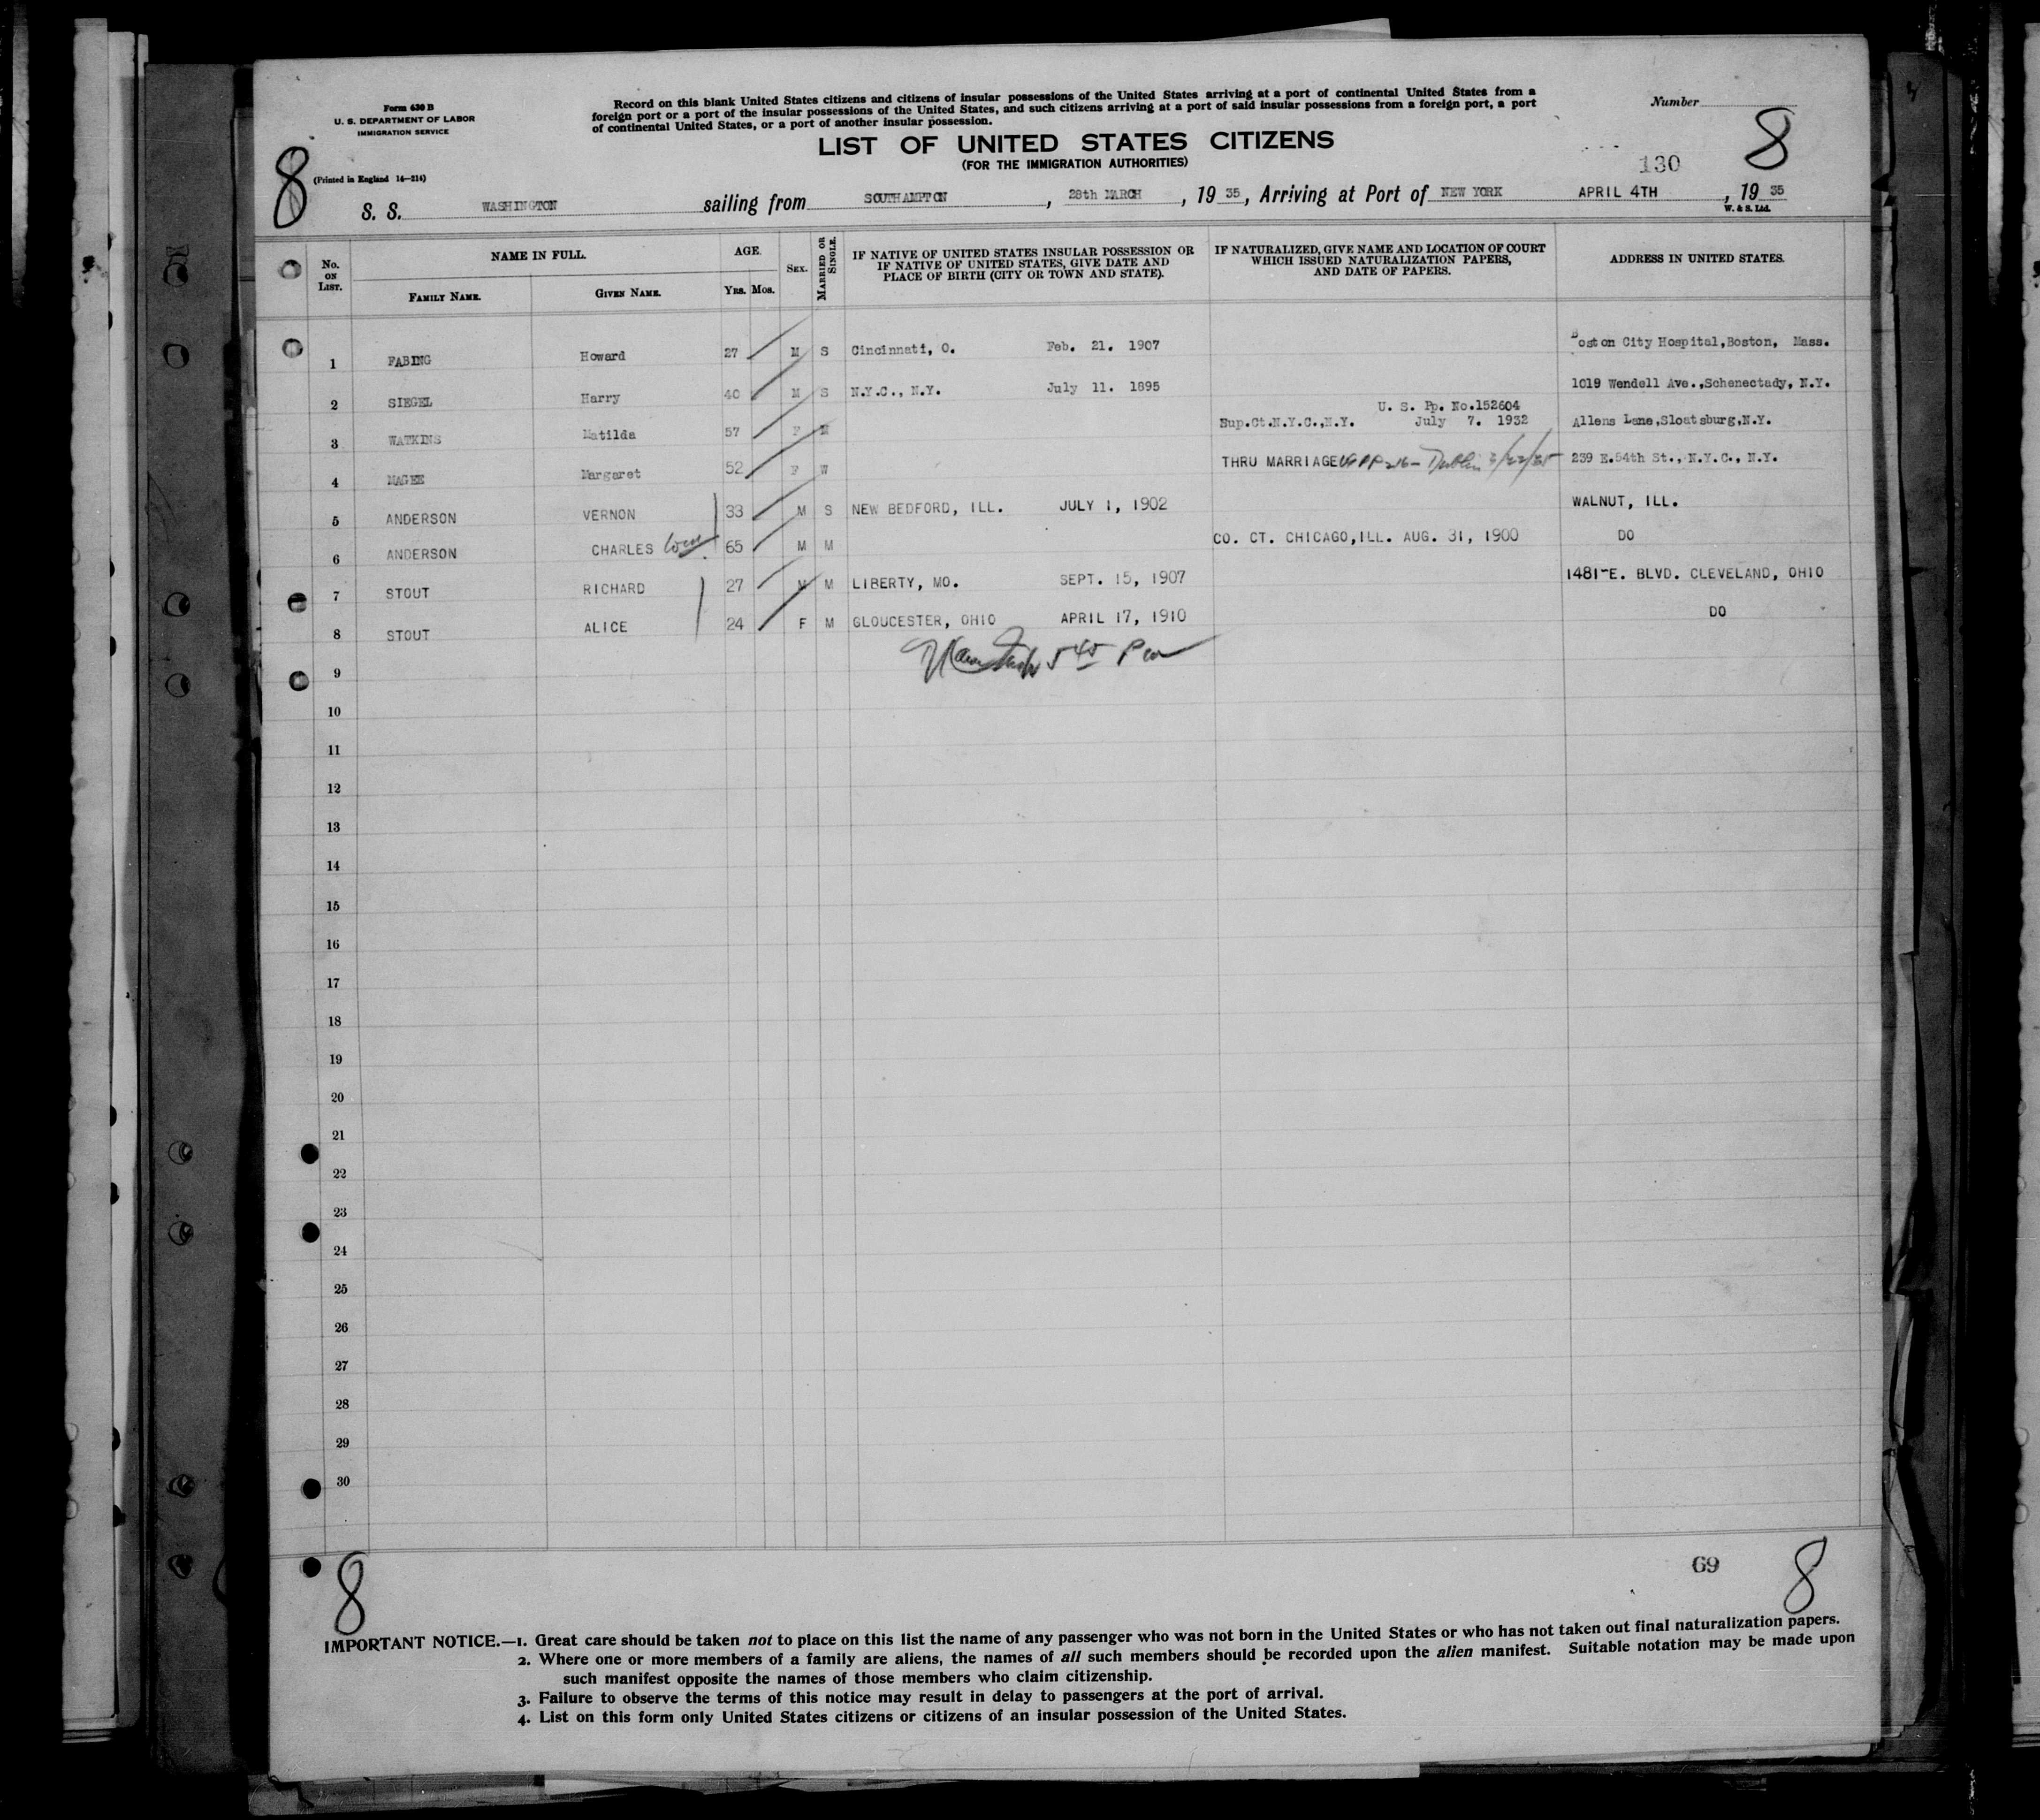 Form 630 B
U. S. DEPARTMENT OF LABOR
IMMIGRATION SERVICE
(Printed in England 14—214)
Record on this blank United States citizens and citizens of insular possessions of the United States arriving at a port of continental United States from a
foreign port or a port of the insular possessions of the United States, and such citizens arriving at a port of said insular possessions from a foreign port, a port
of continental United States, or a port of another insular possession.
Number
LIST OF UNITED STATES CITIZENS
(FOR THE IMMIGRATION AUTHORITIES)
8 130 8
S. S. WASHINGTON sailing from SOUTHAMPTON, 28th MARCH, 19 35, Arriving at Port of NEW YORK APRIL 4TH, 19 35
W. & S. Ltd.
No. ON LIST. NAME IN FULL. AGE. SEX. MARRIED OR SINGLE. IF NATIVE OF UNITED STATES INSULAR POSSESSION OR IF NATIVE OF UNITED STATES, GIVE DATE AND PLACE OF BIRTH (CITY OR TOWN AND STATE). IF NATURALIZED, GIVE NAME AND LOCATION OF COURT WHICH ISSUED NATURALIZATION PAPERS, AND DATE OF PAPERS. ADDRESS IN UNITED STATES.
FAMILY NAME. GIVEN NAME. YRS. MOS.
1 FABING Howard 27 M S Cincinnati, O. Feb. 21. 1907 Boston City Hospital,Boston, Mass.
2 SIEGEL Harry 40 M S N.Y.C., N.Y. July 11. 1895 1019 Wendell Ave.,Schenectady, N.Y.
U. S. Pp. No.152604
3 WATKINS Matilda 57 F M Sup.Ct.N.Y.C.,N.Y. July 7. 1932 Allens Lane,Sloatsburg,N.Y.
4 MAGEE Margaret 52 F W THRU MARRIAGE Dublin 3/22/35 239 E.54th St., N.Y.C., N.Y.
5 ANDERSON VERNON 33 M S NEW BEDFORD, ILL. JULY 1, 1902 WALNUT, ILL.
6 ANDERSON CHARLES 65 M M CO. CT. CHICAGO,ILL. AUG. 31, 1900 DO
7 STOUT RICHARD 27 M M LIBERTY, MO. SEPT. 15, 1907 1481-E. BLVD. CLEVELAND, OHIO
8 STOUT ALICE 24 F M GLOUCESTER, OHIO APRIL 17, 1910 DO
9 5 45 Pm
10
11
12
13
14
15
16
17
18
19
20
21
22
23
24
25
26
27
28
29
30
8 69 8
IMPORTANT NOTICE.—1. Great care should be taken not to place on this list the name of any passenger who was not born in the United States or who has not taken out final naturalization papers.
2. Where one or more members of a family are aliens, the names of all such members should be recorded upon the alien manifest. Suitable notation may be made upon
such manifest opposite the names of those members who claim citizenship.
3. Failure to observe the terms of this notice may result in delay to passengers at the port of arrival.
4. List on this form only United States citizens or citizens of an insular possession of the United States.